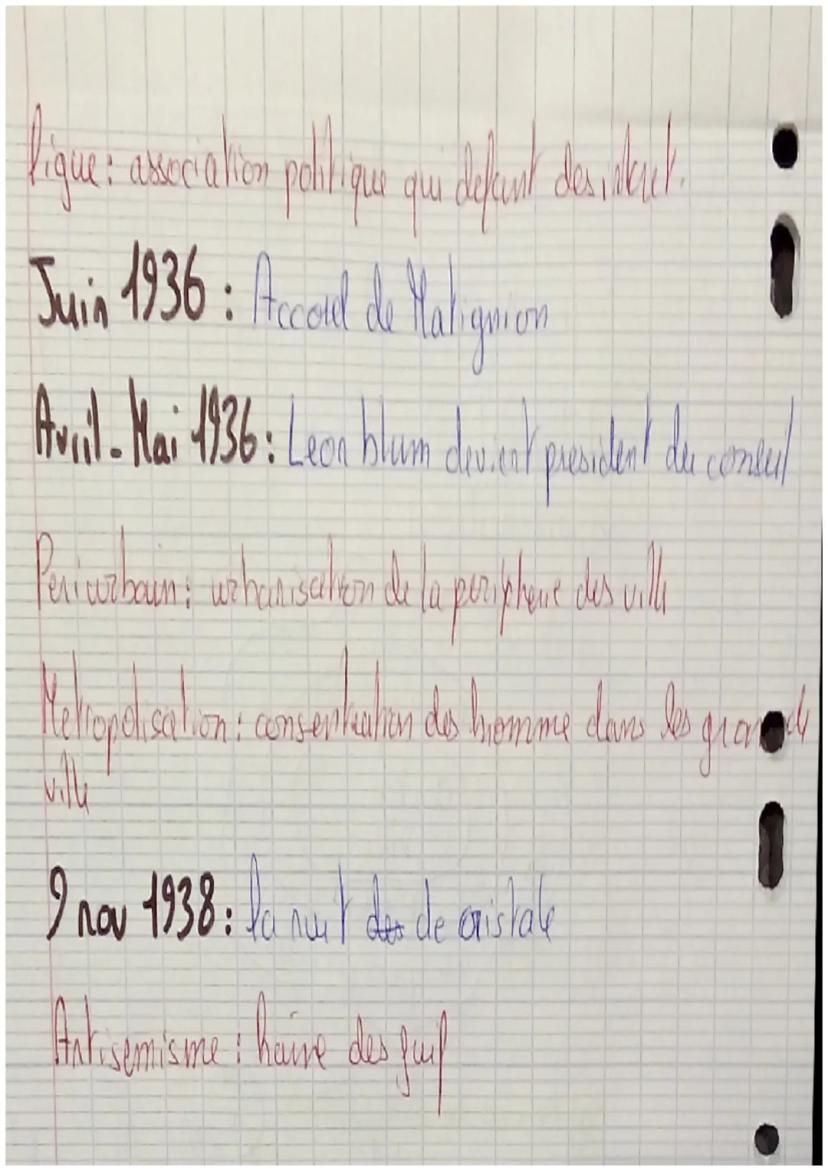 ligue : association politique qui defant des interet.
Juin 1936 : Accord de Matignion
Avril-Mai 1936 : Leon blum devient president du conseil
Periurbain : urbanisation de la peripherie des ville
Metropolisation : consentration des homme dans les grande
ville
9 nov 1938 : la nuit des de cristale
Antisemisme : haine des juif